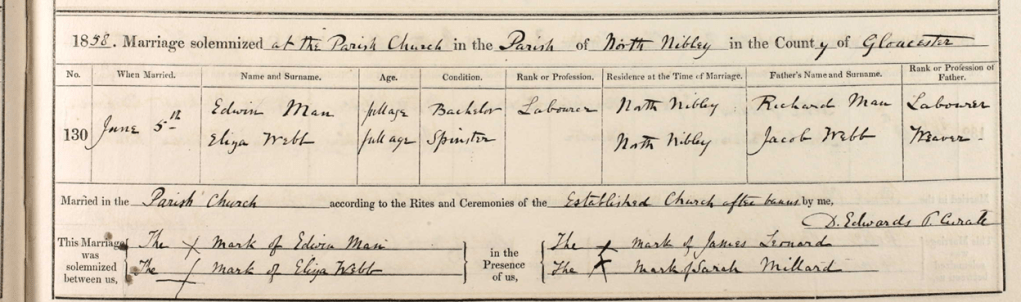 1858. Marriage solemnized at the Parish Church in the Parish of North Nibley in the County of Gloucester
No. When Married. Name and Surname. Age. Condition. Rank or Profession. Residence at the Time of Marriage. Father's Name and Surname. Rank or Profession of Father.
Edwin Man full age Bachelor Labourer North Nibley Richard Man Labourer
130 June 5th Eliza Webb full age Spinster North Nibley Jacob Webb Weaver
Married in the Parish Church according to the Rites and Ceremonies of the Established Church after banns by me,
D. Edwards P. Curate
This Marriage was solemnized between us,
The X mark of Edwin Man
The X mark of Eliza Webb
in the Presence of us,
The X mark of James Leonard
The X mark of Sarah Millard